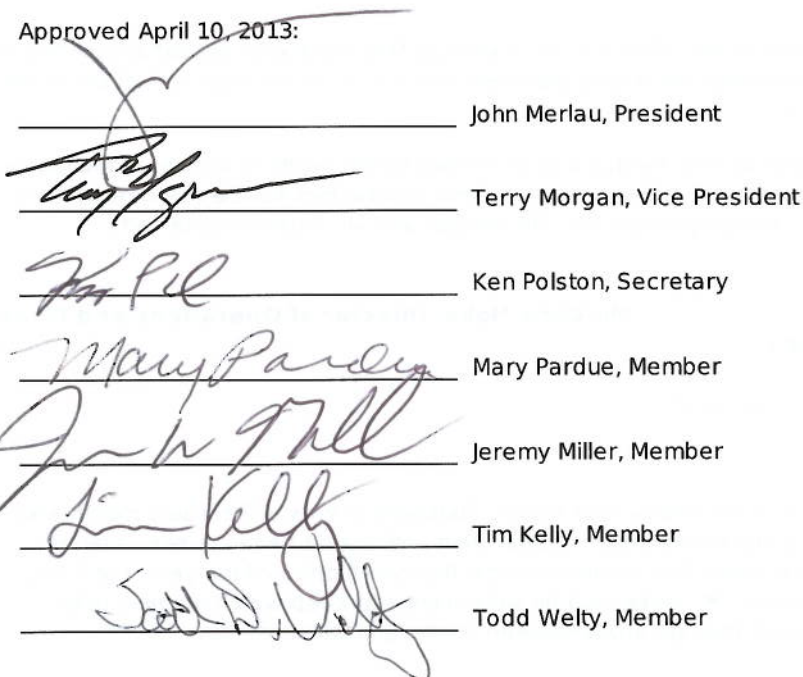 Approved April 10, 2013:
John Merlau, President
Terry Morgan, Vice President
Ken Polston, Secretary
Mary Pardue Mary Pardue, Member
Jeremy Miller, Member
Tim Kelly Tim Kelly, Member
Todd Welty, Member